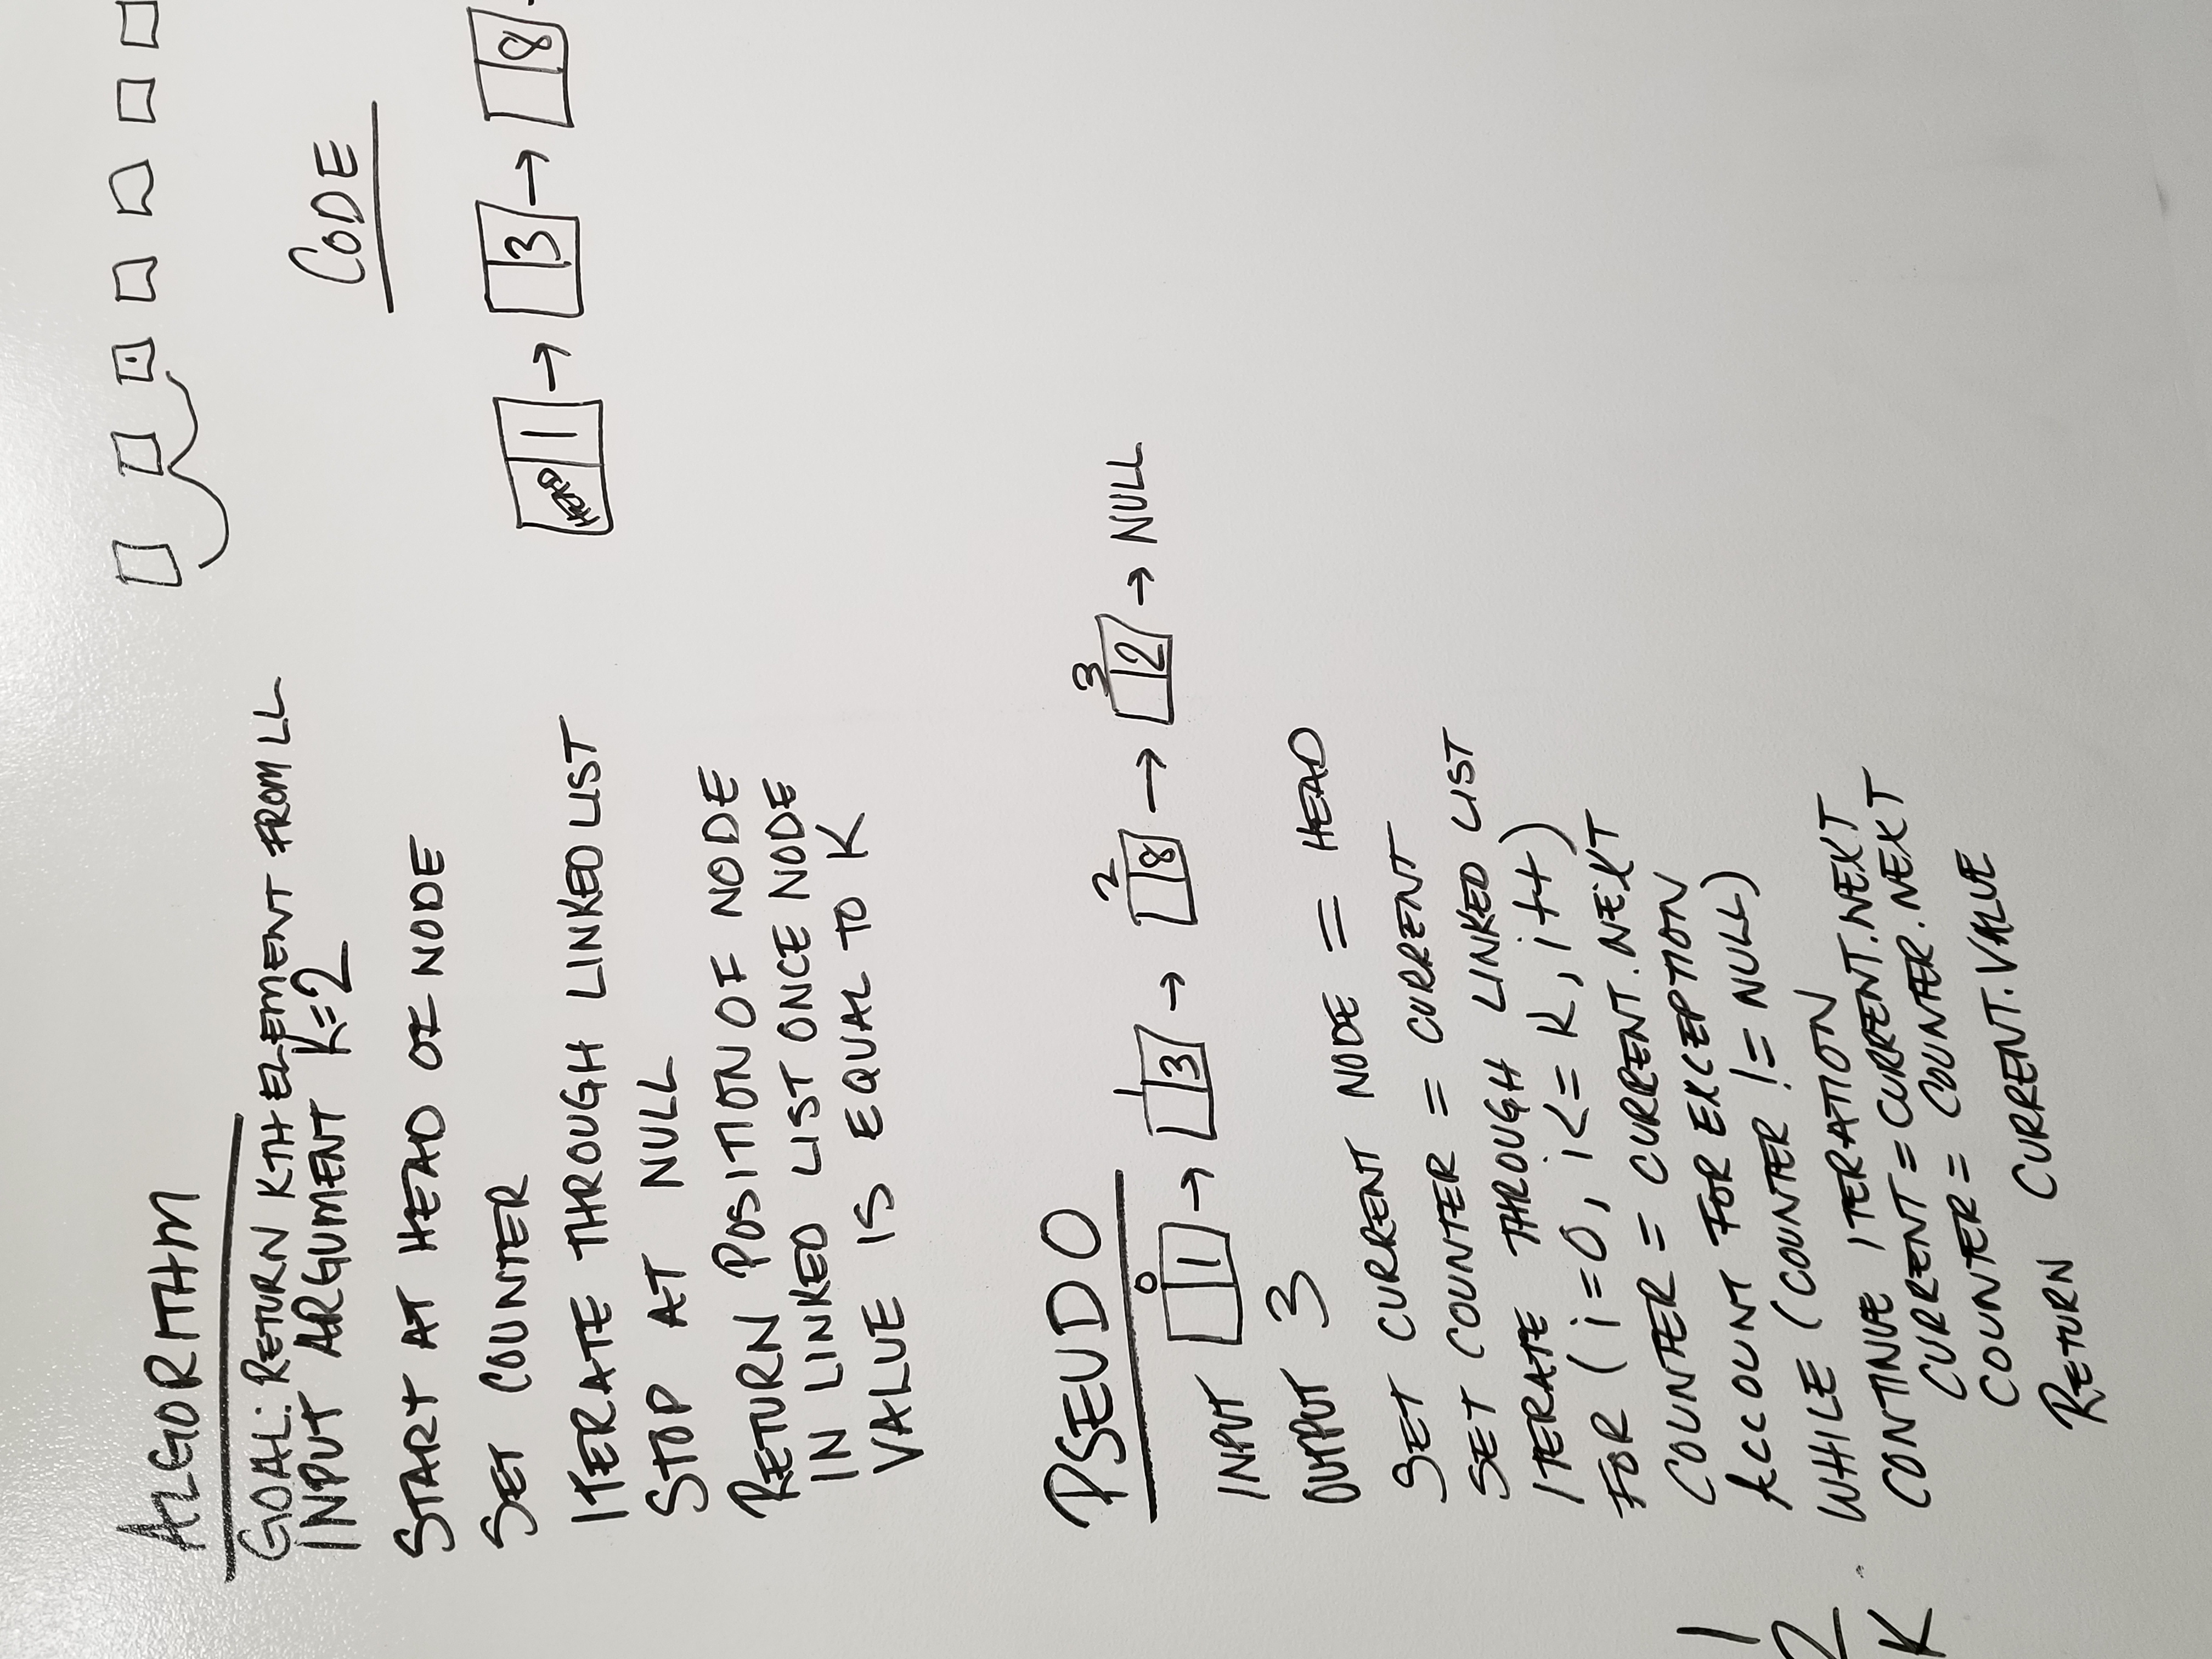 ALGORITHM
GOAL: RETURN KTH ELEMENT FROM LL
INPUT ARGUMENT K=2
START AT HEAD OF NODE
SET COUNTER
ITERATE THROUGH LINKED LIST
STOP AT NULL
RETURN POSITION OF NODE
IN LINKED LIST ONCE NODE
VALUE IS EQUAL TO K
CODE
HEAD 1 → 3 → 8
PSEUDO
0 1 2 3
INPUT 1 → 3 → 8 → 2 → NULL
OUTPUT 3
SET CURRENT NODE = HEAD
SET COUNTER = CURRENT
ITERATE THROUGH LINKED LIST
FOR (i=0, i<= K, i++)
COUNTER = CURRENT.NEXT
ACCOUNT FOR EXCEPTION
WHILE (COUNTER != NULL)
CONTINUE ITERATION
CURRENT = CURRENT.NEXT
COUNTER = COUNTER.NEXT
RETURN CURRENT.VALUE
1
2
K